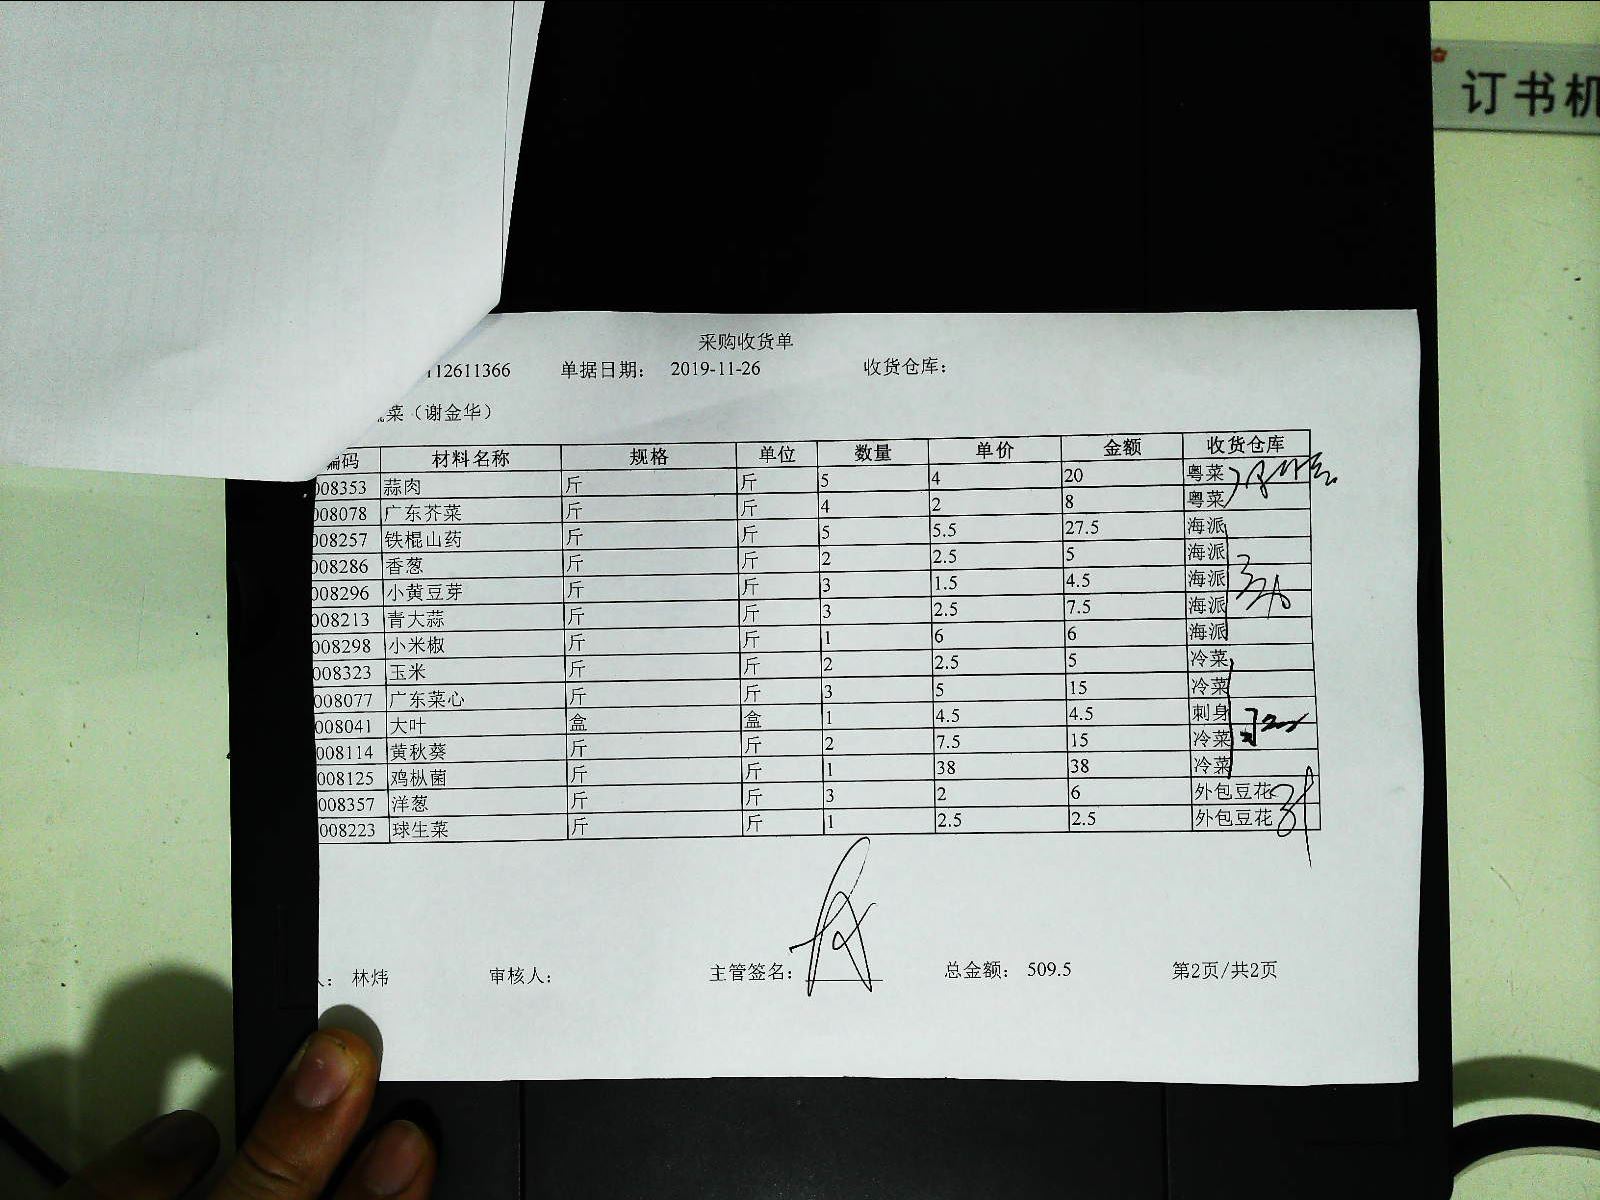 订书机
采购收货单
112611366 单据日期: 2019-11-26 收货仓库:
菜（谢金华）
编码 材料名称 规格 单位 数量 单价 金额 收货仓库
008353 蒜肉 斤 斤 5 4 20 粤菜
008078 广东芥菜 斤 斤 4 2 8 粤菜
008257 铁棍山药 斤 斤 5 5.5 27.5 海派
008286 香葱 斤 斤 2 2.5 5 海派
008296 小黄豆芽 斤 斤 3 1.5 4.5 海派
008213 青大蒜 斤 斤 3 2.5 7.5 海派
008298 小米椒 斤 斤 1 6 6 海派
008323 玉米 斤 斤 2 2.5 5 冷菜
008077 广东菜心 斤 斤 3 5 15 冷菜
008041 大叶 盒 盒 1 4.5 4.5 刺身
008114 黄秋葵 斤 斤 2 7.5 15 冷菜
008125 鸡枞菌 斤 斤 1 38 38 冷菜
008357 洋葱 斤 斤 3 2 6 外包豆花
008223 球生菜 斤 斤 1 2.5 2.5 外包豆花
人: 林炜 审核人: 主管签名: 总金额: 509.5 第2页/共2页